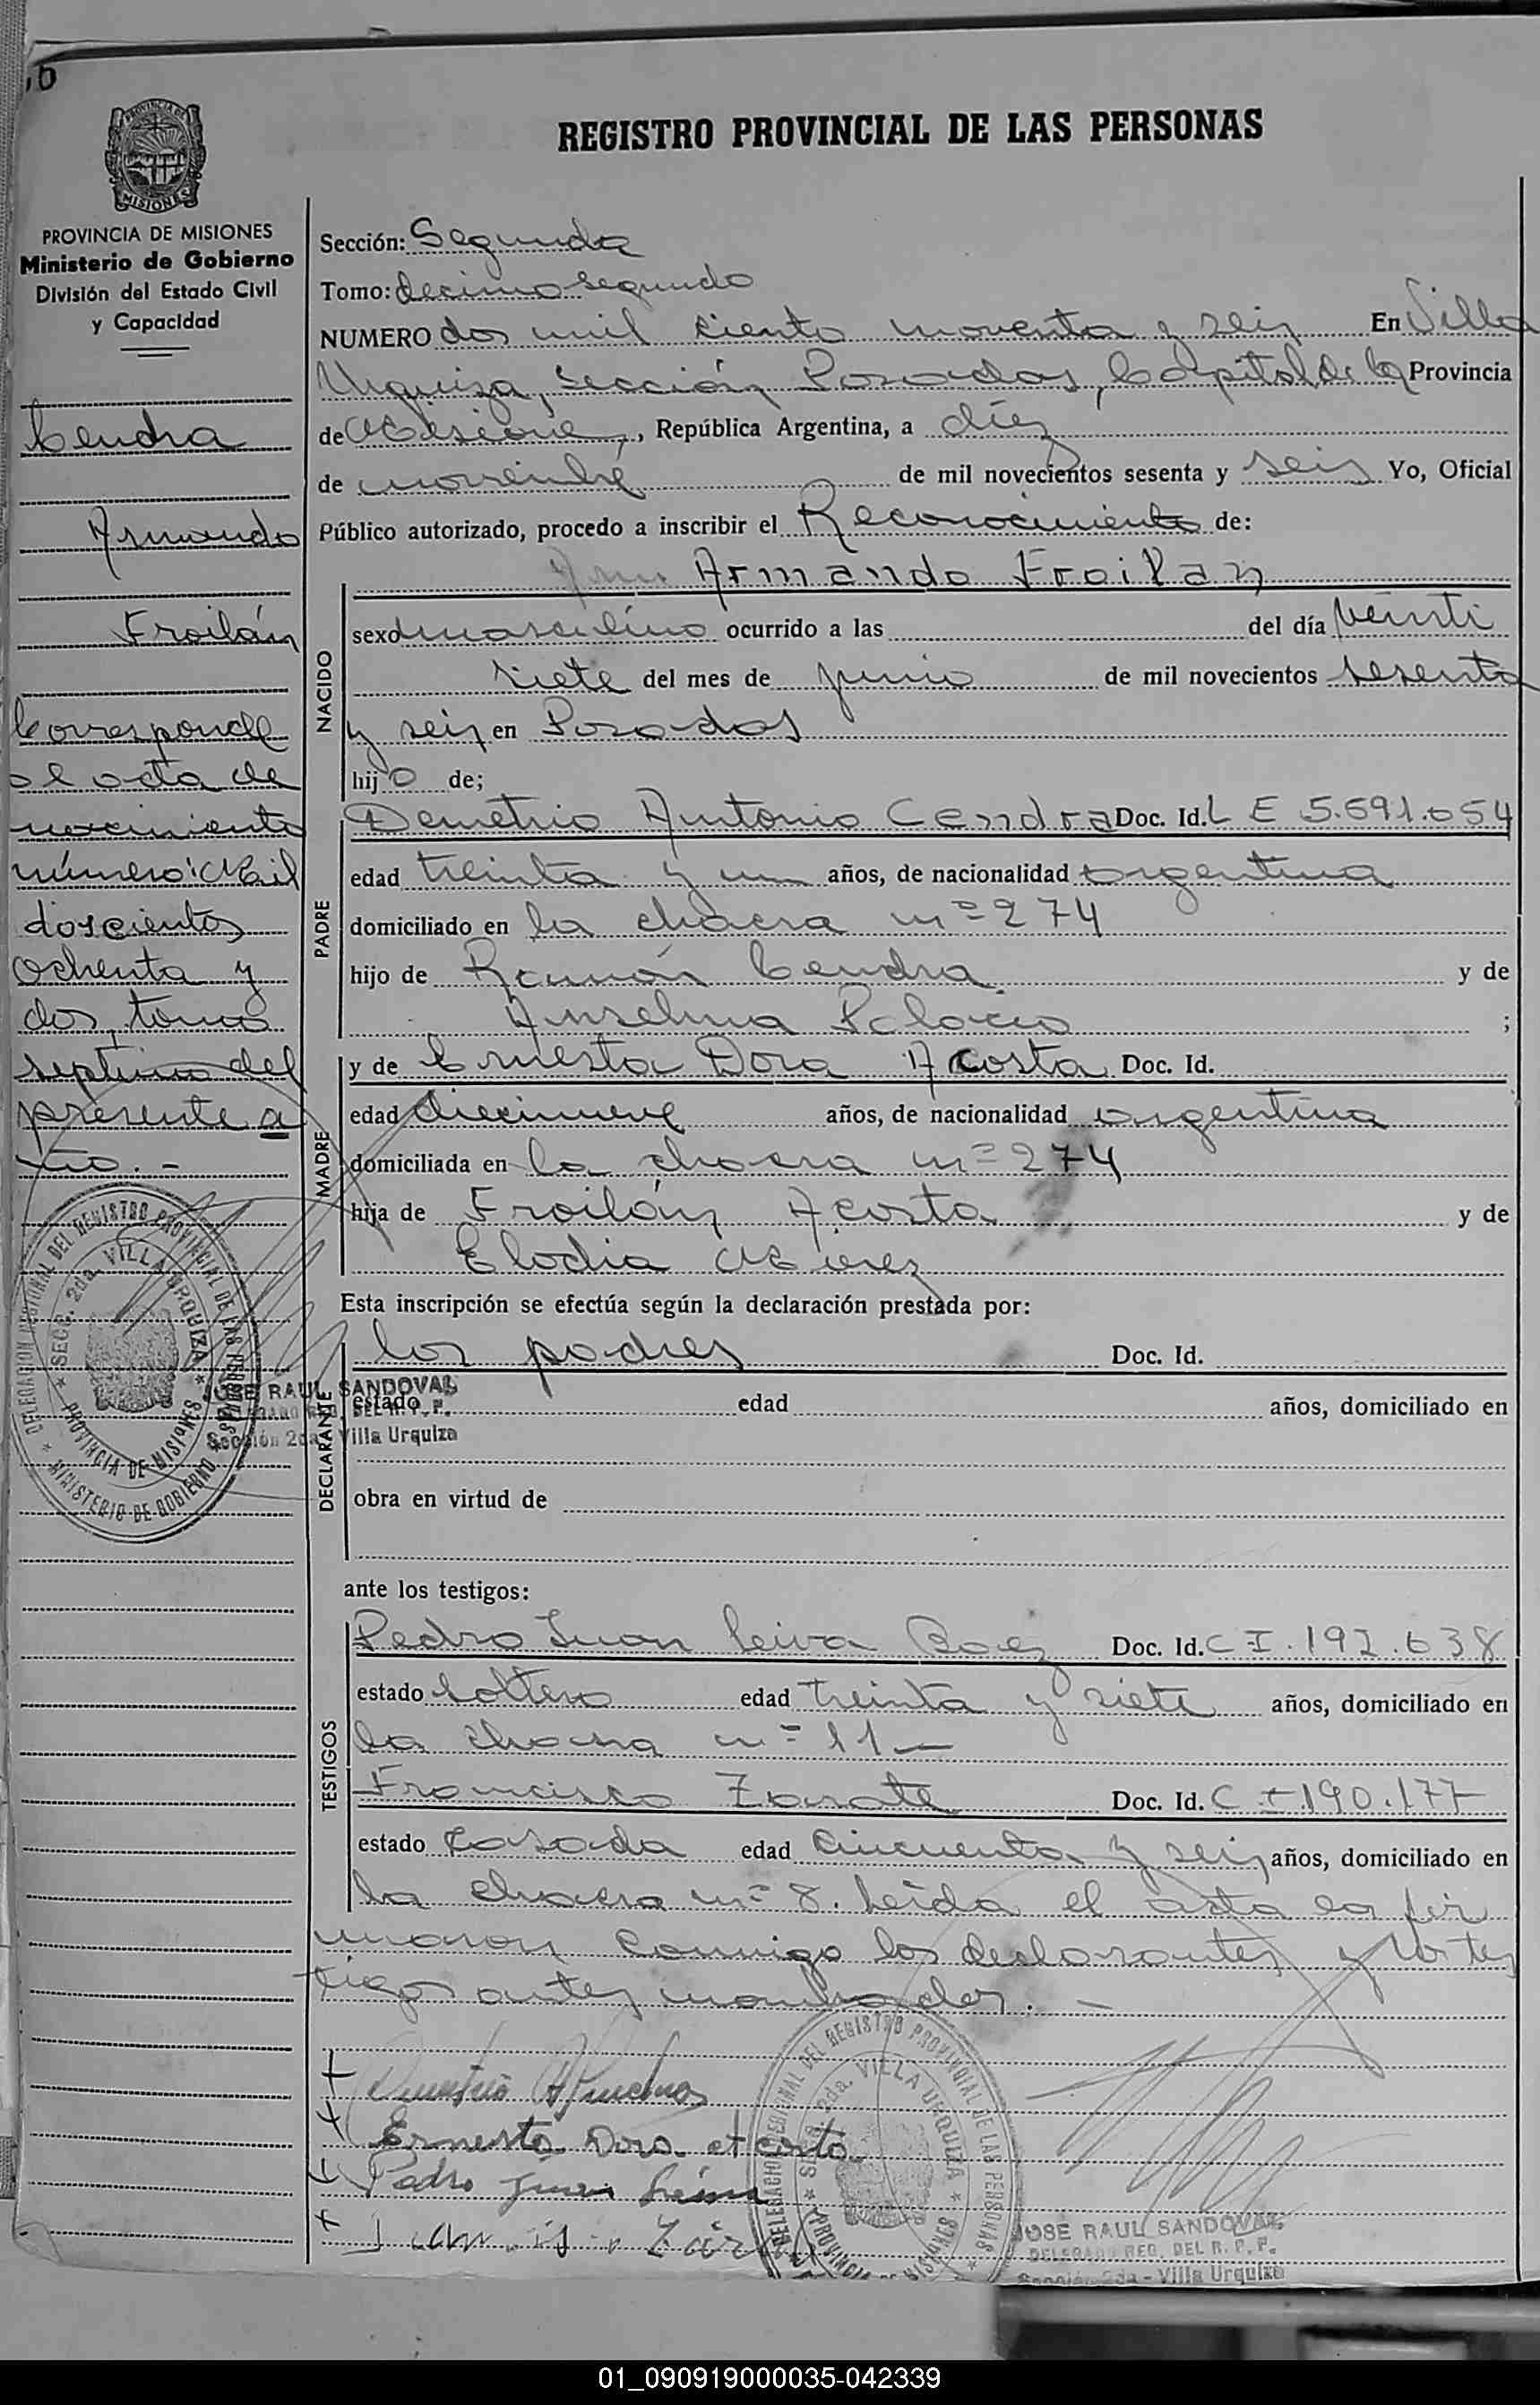 REGISTRO PROVINCIAL DE LAS PERSONAS
PROVINCIA DE MISIONES
Ministerio de Gobierno
División del Estado Civil
y Capacidad
Cendra
Armando
Froilán
Corresponde
al acta de
nacimiento
número: Mil
doscientos
ochenta y
dos, tomo
septimo del
presente a
ño. -
Sección: Segunda
Tomo: decimo segundo
NUMERO dos mil ciento noventa y seis En Villa
Urquiza, Sección Posadas, Capital de la Provincia
de Misiones, República Argentina, a diez
de noviembre de mil novecientos sesenta y seis Yo, Oficial
Público autorizado, procedo a inscribir el Reconocimiento de:
Armando Froilan
NACIDO
sexo masculino ocurrido a las del día veinti
siete del mes de junio de mil novecientos sesenta
y seis en Posadas
hijo de;
PADRE
Demetrio Antonio Cendra Doc. Id. L E 5.691.054
edad treinta y un años, de nacionalidad argentina
domiciliado en la chacra nº 274
hijo de Ramón Cendra y de
Anselma Palacio ;
MADRE
y de Ernesta Dora Acosta Doc. Id.
edad diecinueve años, de nacionalidad argentina
domiciliada en la chacra nº 274
hija de Froilán Acosta y de
Elodia
Esta inscripción se efectúa según la declaración prestada por:
DECLARANTE
los padres Doc. Id.
estado edad años, domiciliado en
obra en virtud de
ante los testigos:
TESTIGOS
Pedro Juan Leiva Baez Doc. Id. C I. 192.638
estado soltero edad treinta y siete años, domiciliado en
la chacra nº 11 —
Francisco Zarate Doc. Id. C I 190.177
estado casado edad cincuenta y seis años, domiciliado en
la chacra nº 8. Leída el acta la fir
maron conmigo los declarantes y los tes
tigos antes nombrados. —
Ernesta Dora Acosta
Pedro Juan Leiva
DELEGACION REGIONAL DEL REGISTRO PROVINCIAL DE LAS PERSONAS
SECC. 2da. VILLA URQUIZA
PROVINCIA DE MISIONES
MINISTERIO DE GOBIERNO
JOSE RAUL SANDOVAL
DELEGADO REG. DEL R. P. P.
Sección 2da. Villa Urquiza
DELEGACION REGIONAL DEL REGISTRO PROVINCIAL DE LAS PERSONAS
SECC. 2da. VILLA URQUIZA
PROVINCIA DE MISIONES
JOSE RAUL SANDOVAL
DELEGADO REG. DEL R. P. P.
Sección 2da - Villa Urquiza
01_090919000035-042339